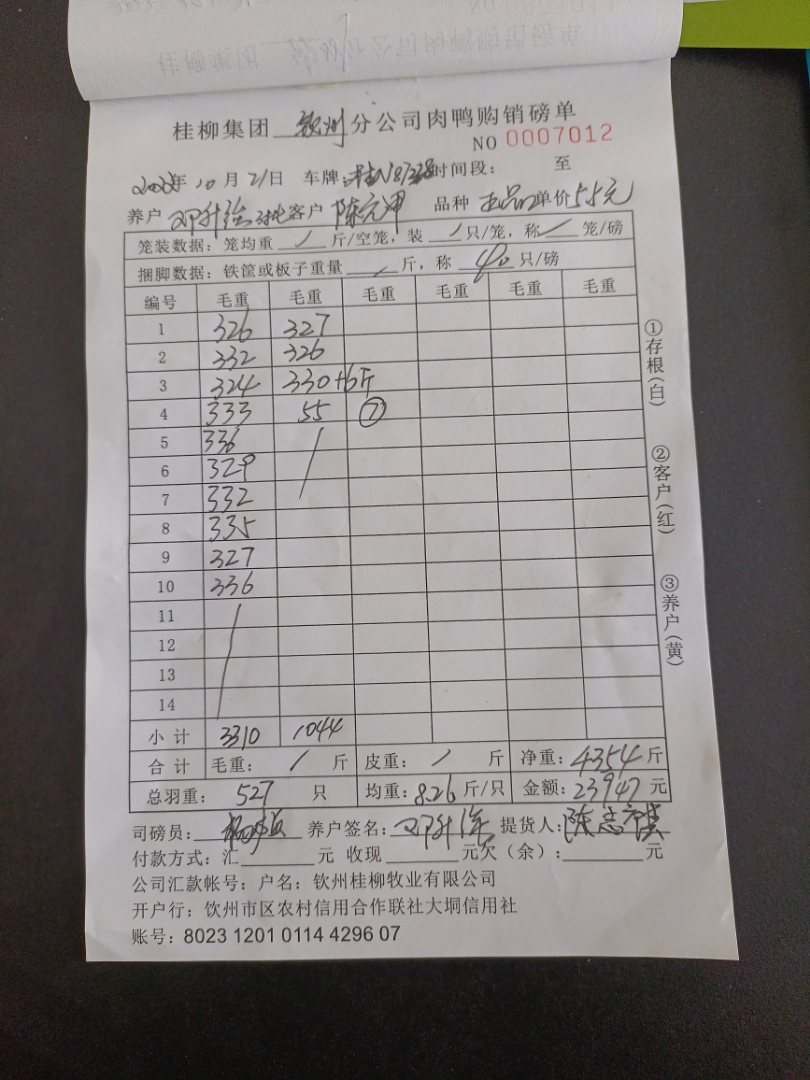 桂柳集团 钦州 分公司肉鸭购销磅单
NO 0007012
年 10 月 21 日 车牌: 时间段: 至
养户 邓升 客户 陈元 品种 正品 单价 5.5元
笼装数据: 笼均重 / 斤/空笼, 装 / 只/笼, 称 / 笼/磅
捆脚数据: 铁筐或板子重量 / 斤, 称 40 只/磅
编号 毛重 毛重 毛重 毛重 毛重 毛重
1 326 327
2 332 326
3 324 330+6斤
4 333 55 ⑦
5 336 /
6 329
7 332
8 335
9 327
10 336
11 /
12
13
14
小计 3310 1044
合计 毛重: / 斤 皮重: / 斤 净重: 4354 斤
总羽重: 527 只 均重: 8.26 斤/只 金额: 23947 元
司磅员: 养户签名: 邓升 提货人: 陈志
付款方式: 汇 元 收现 元欠(余): 元
公司汇款帐号: 户名: 钦州桂柳牧业有限公司
开户行: 饮州市区农村信用合作联社大垌信用社
账号: 8023 1201 0114 4296 07
①存根(白)
②客户(红)
③养户(黄)